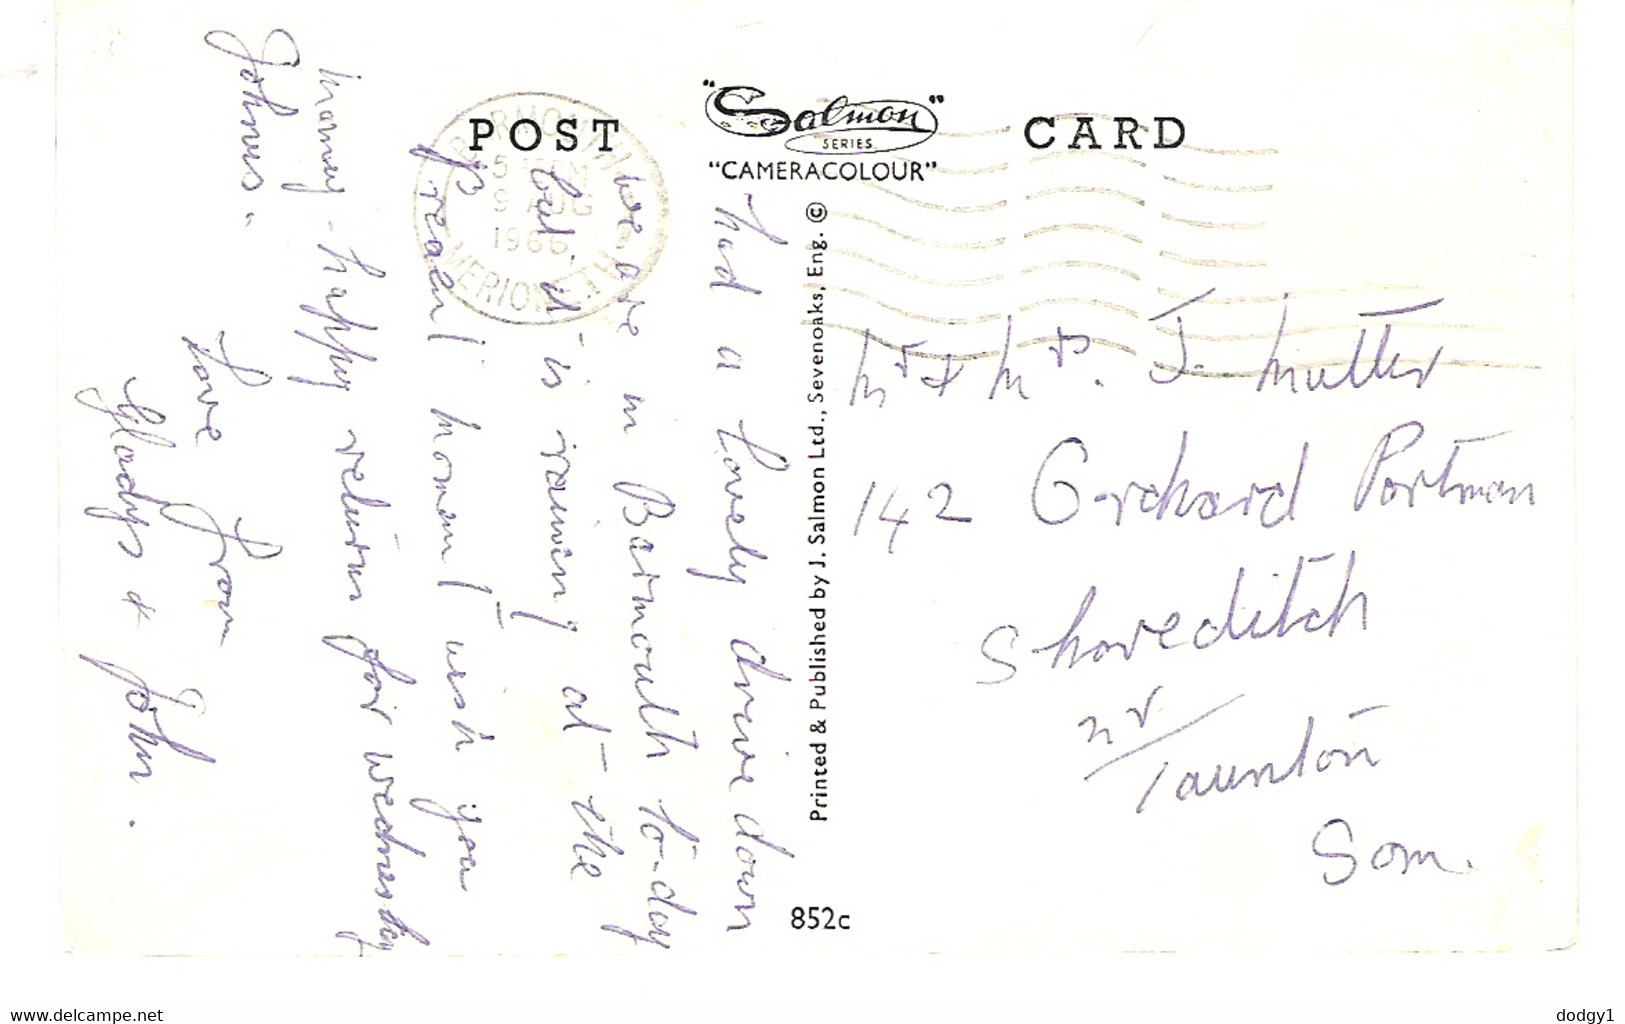 POST
"Salmon"
SERIES
"CAMERACOLOUR"
CARD
BARMOUTH
9 AUG
1966
MERIONETH
had a lovely drive down
we are in Barmouth to-day
but it is raining at the
present moment wish you
many happy return for wednesday
Johns.
Love from
Gladys & John.
Printed & Published by J. Salmon Ltd., Sevenoaks, Eng. ©
Mr & Mrs. J. Mutter
142 Orchard Portman
Shoreditch
nr
Taunton
Som.
852c
www.delcampe.net
dodgy1